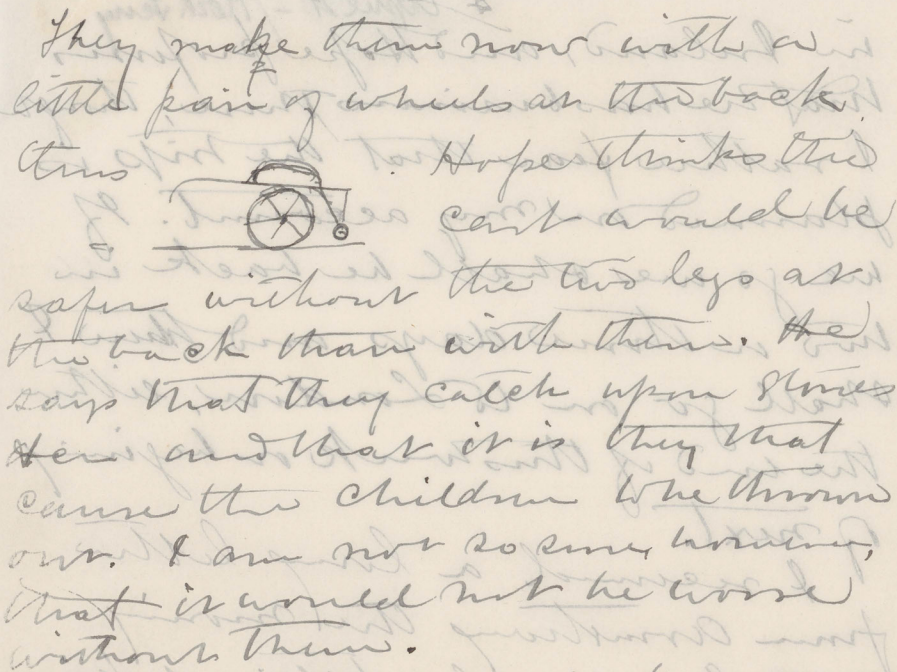 They make them now with a
little pair of wheels at the back
thus . Hope thinks the
cart would be
safer without the two legs at
the back than with them. He
says that they catch upon stones
&c and that it is they that
cause the children to be thrown
out. I am not so sure, however,
that it would not be worse
without them.